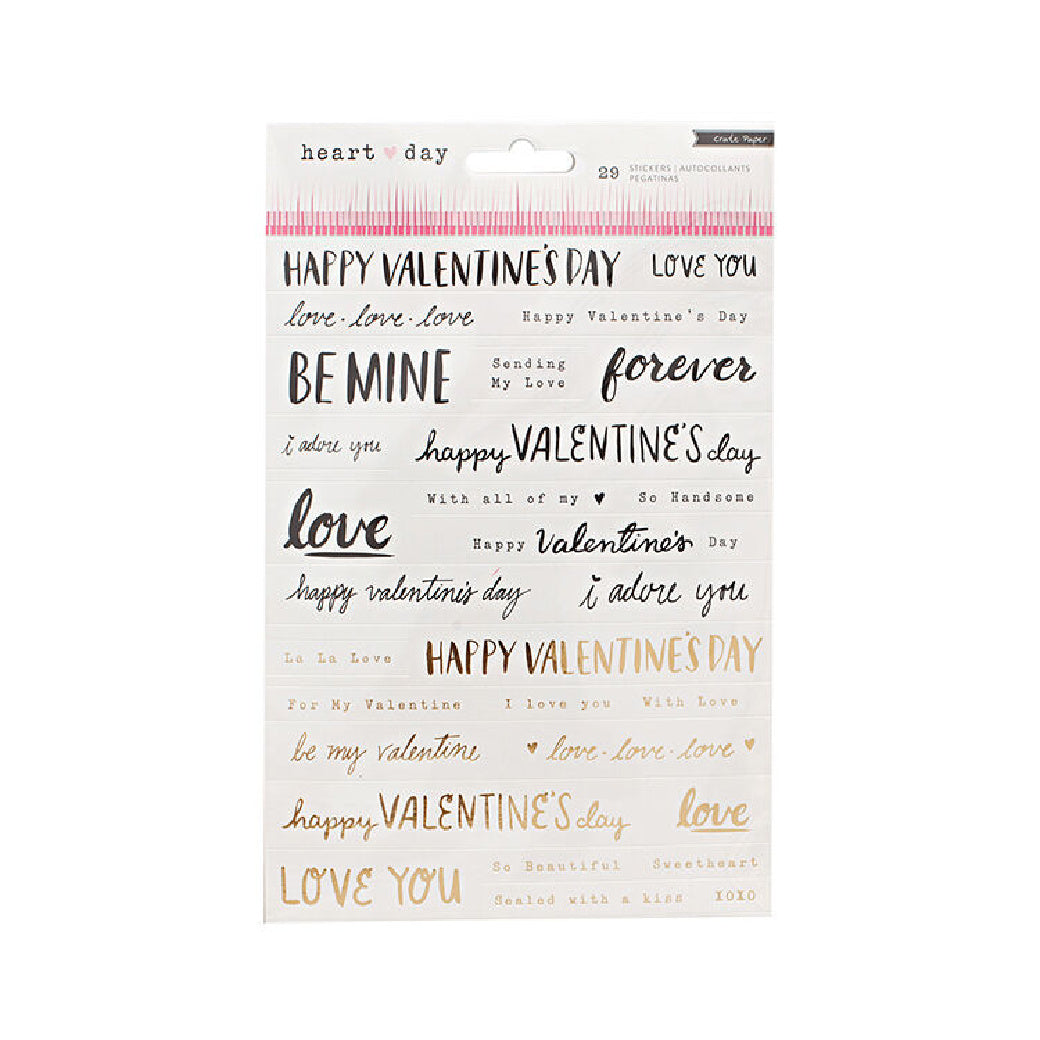 heart day
crate paper
29 STICKERS | AUTOCOLLANTS
PEGATINAS
HAPPY VALENTINE'S DAY LOVE YOU
love · love · love Happy Valentine's Day
BE MINE Sending
My Love forever
i adore you happy VALENTINE'S day
With all of my ♥ So Handsome
love
Happy Valentine's Day
happy valentine's day i adore you
La La Love HAPPY VALENTINE'S DAY
For My Valentine I love you With Love
be my valentine ♥ love · love · love ♥
happy VALENTINE'S day love
LOVE YOU So Beautiful Sweetheart
Sealed with a kiss XOXO